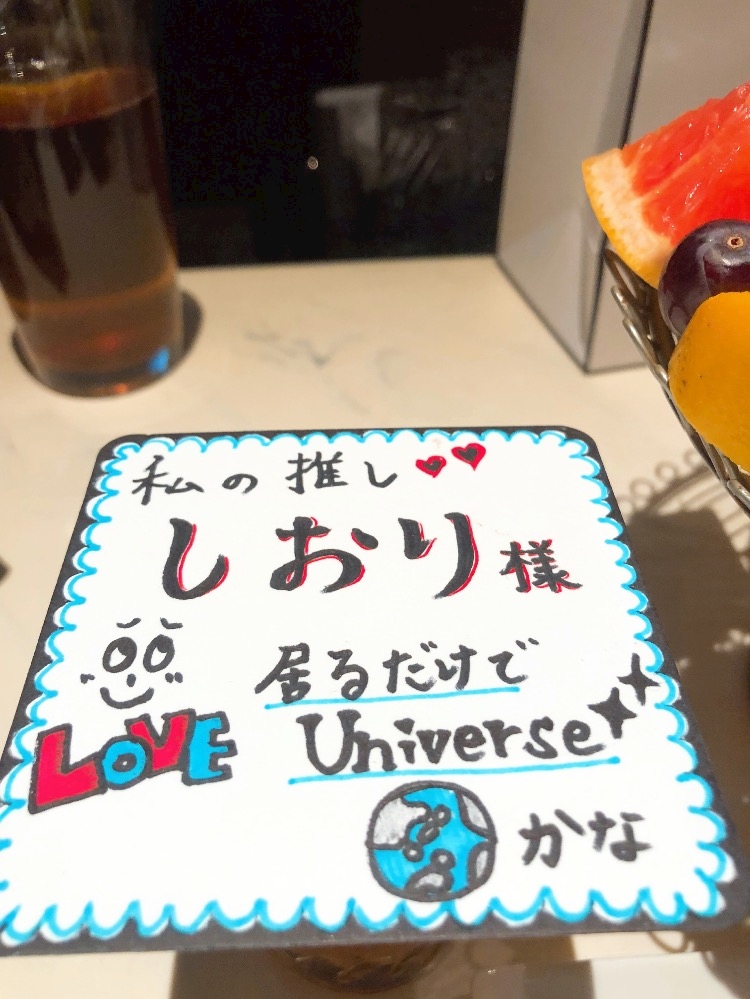 私の推し
しおり様
居るだけで
LOVE
Universe
かな